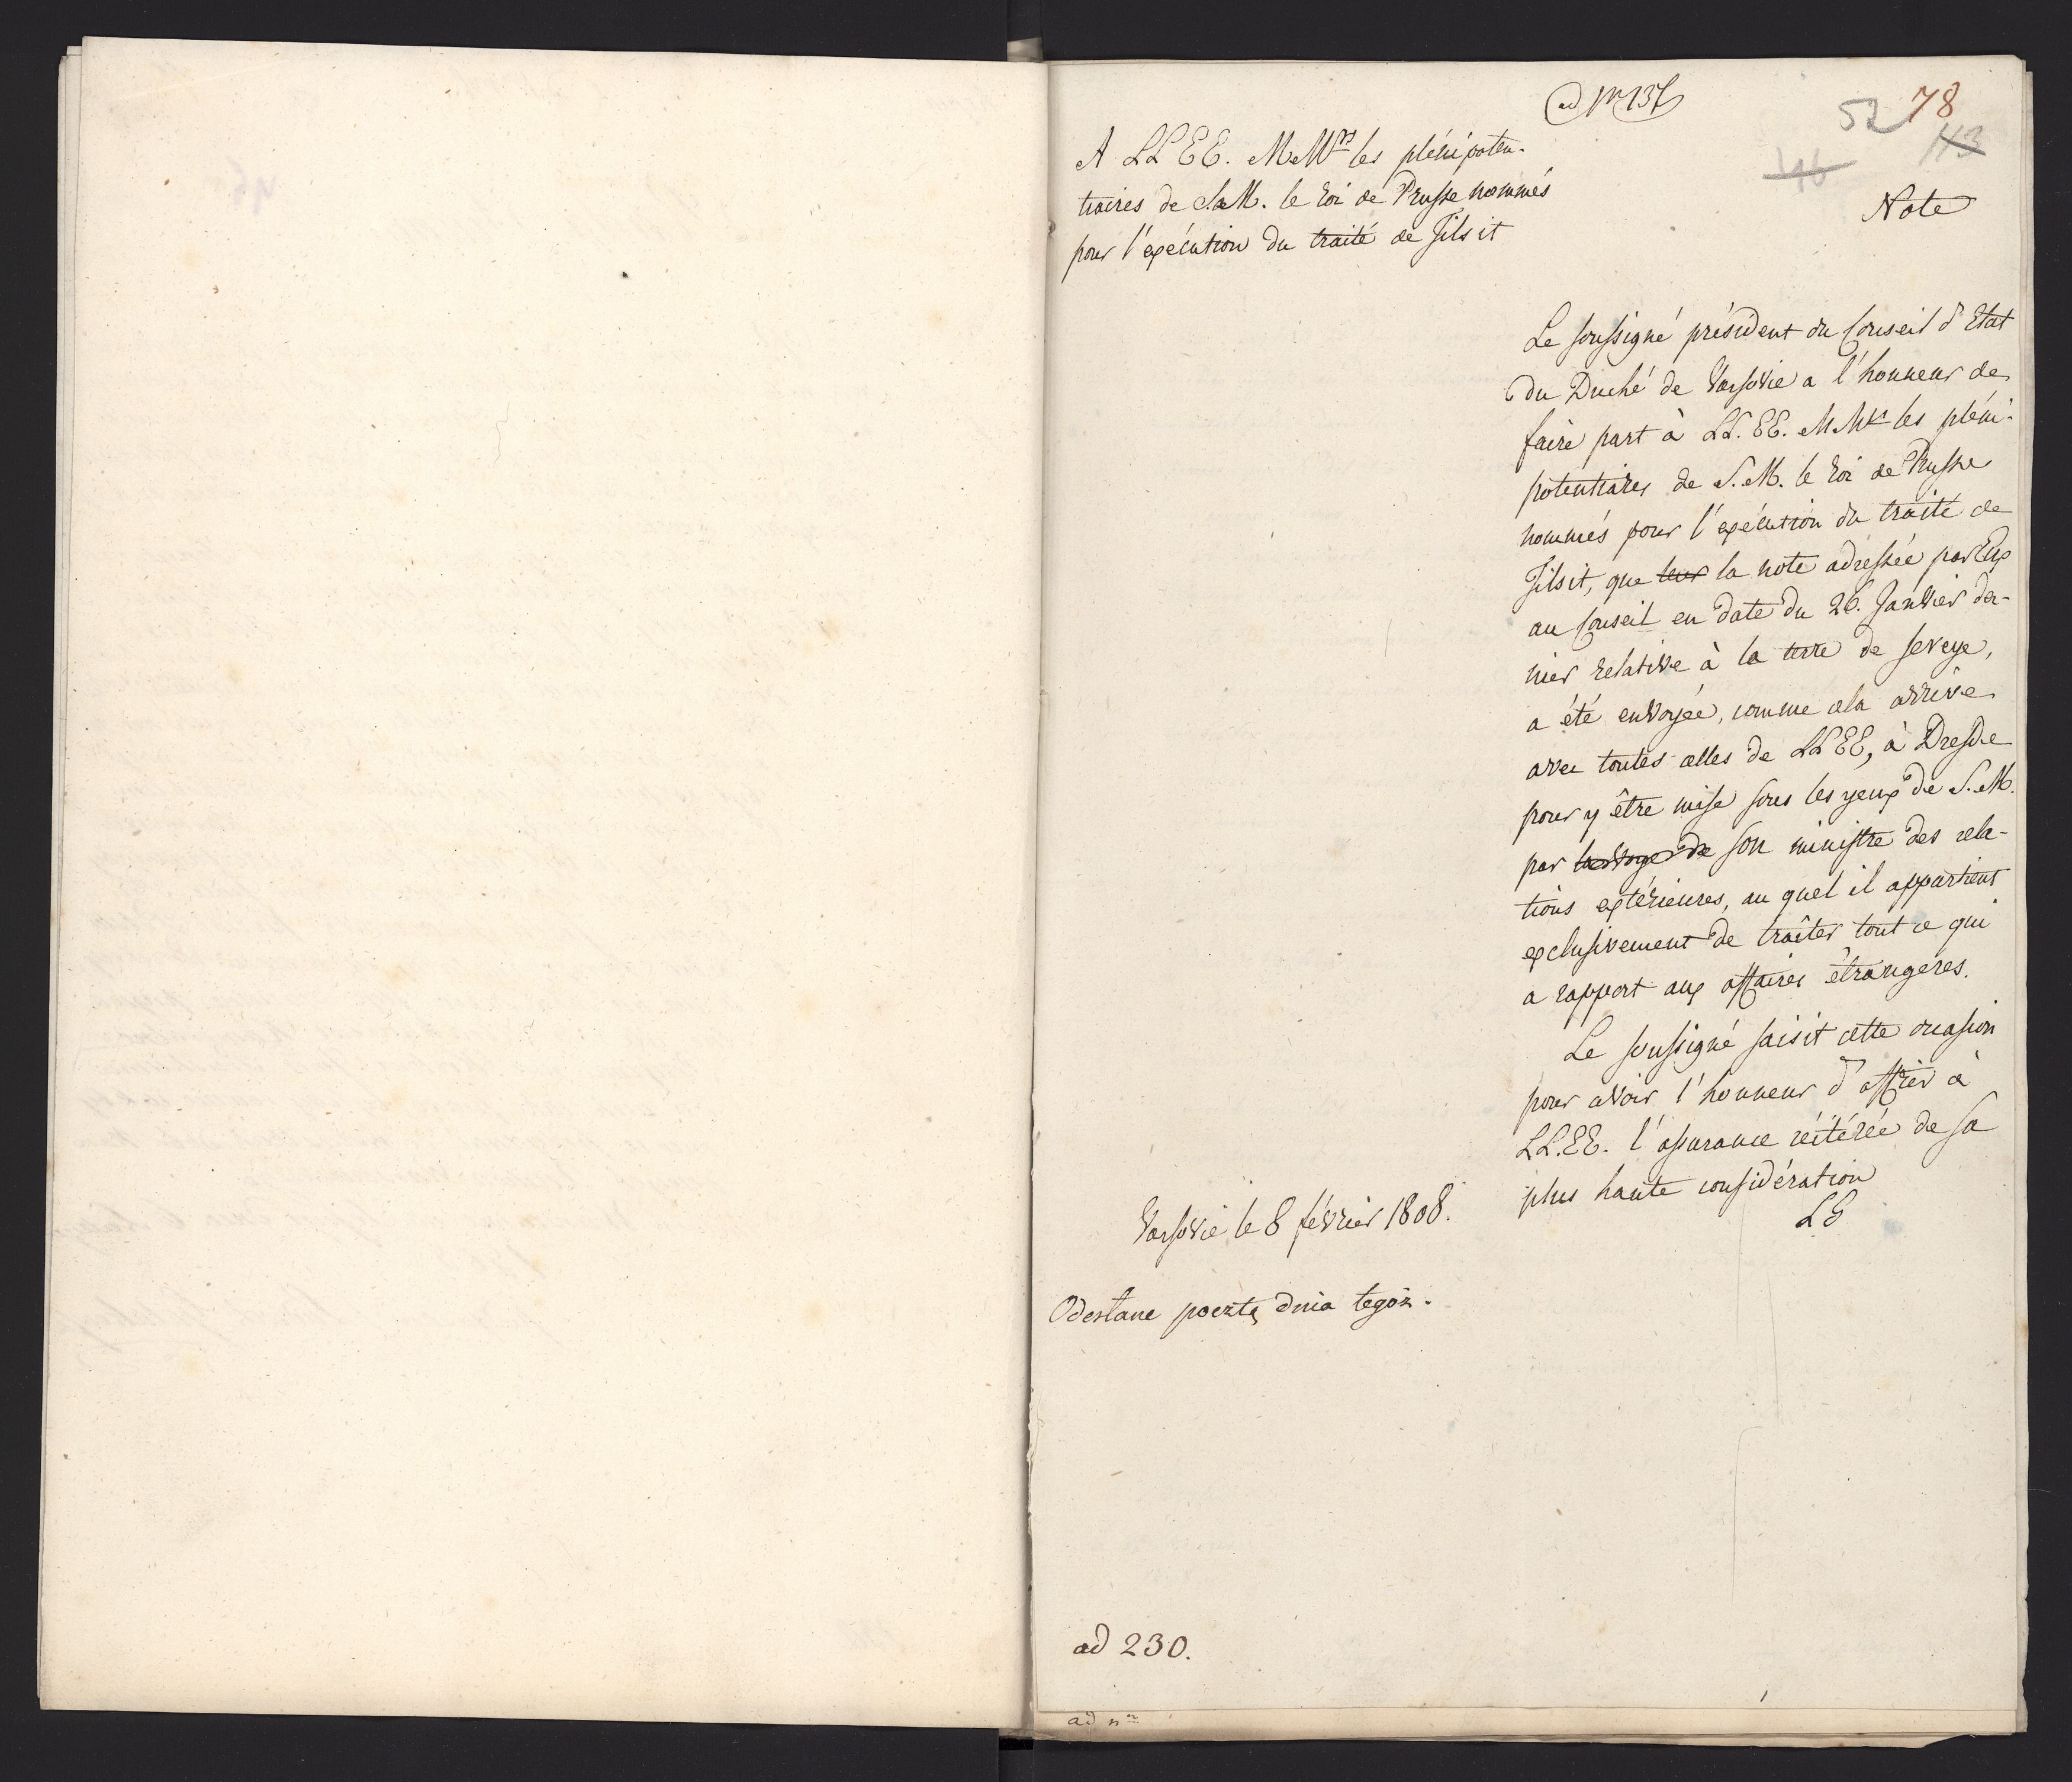 ad Nr 137
52 78
A LL EE. MMrs les plénipoten-
tiaires de Sa M. le roi de Prusse nommés
pour l'exécution du traité de Tilsit
Note
Le soussigné président du Conseil d'Etat
du Duché de Varsovie a l'honneur de
faire part à LL. EE. MMrs les pléni-
potentiaires de S. M. le roi de Prusse
nommés pour l'exécution du traité de
Tilsit, que leur la note adressée par Eux
au Conseil en date du 26. Janvier der-
nier relative à la terre de
a été envoyée, comme cela arrive
avec toutes celles de LL EE, à Dresde
pour y être mise sous les yeux de S. M.
par de son ministre des rela-
tions extérieures, au quel il appartient
exclusivement de traîter tout ce qui
a rapport aux affaires étrangères.
Le soussigné saisit cette occasion
pour avoir l'honneur d'offrir à
LL. EE. l'assurance réitérée de sa
plus haute considération
LG
Varsovie le 8 février 1808.
Odesłane pocztą dnia tegoż.
ad 230.
ad nr